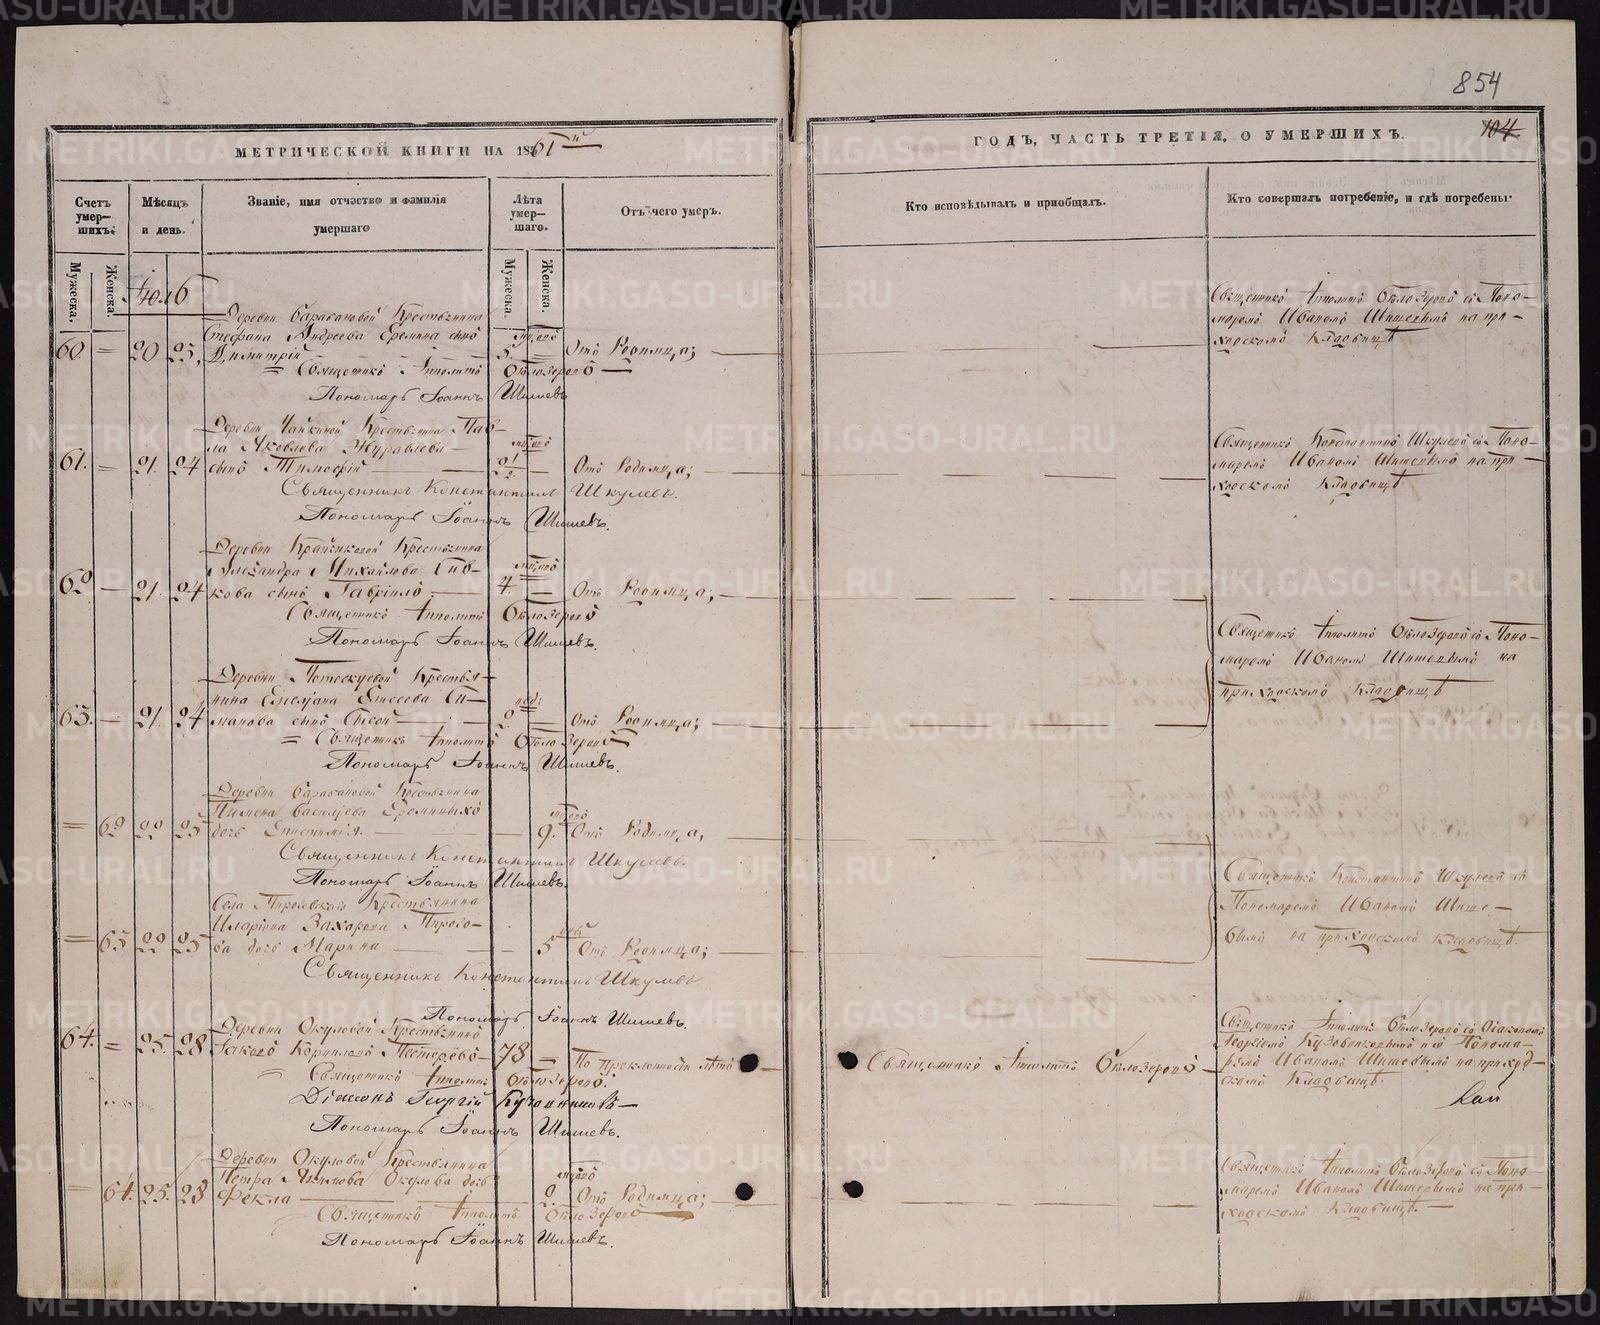 854
104.
МЕТРИЧЕСКОЙ КНИГИ НА 1861й
ГОДЪ, ЧАСТЬ ТРЕТІЯ, О УМЕРШИХЪ.
Счетъ умер-шихъ.
Мѣсяцъ и день.
Званіе, имя отчество и фамилія умершаго
Лѣта умер-шаго.
Отъ чего умеръ.
Кто исповѣдывалъ и пріобщалъ.
Кто совершалъ погребеніе, и гдѣ погребены.
Мужеска.
Женска.
Мужеска.
Женска.
Іюль
Деревни Баракановой Крестьянина
Стефана Андреева Еремина сынъ
60. = 20 23, Димитрій 3. = Отъ Родимца;
Священникъ Ипполитъ Бѣлозеровъ
Пономарь Іоаннъ Шишевъ
Священникъ Ипполитъ Бѣлозеровъ съ Поно-
маремъ Иваномъ Шишевымъ на при-
ходскомъ Кладбищѣ
Деревни Чайкиной Крестьянина Пав-
ла Яковлева Журавлева
61. = 21. 24 сынъ Тимофей Отъ Родимца;
Священникъ Константинъ Шкулевъ.
Пономарь Іоаннъ Шишевъ.
Священникъ Константинъ Шкулевъ съ Поно-
маремъ Иваномъ Шишевымъ на при-
ходскомъ Кладбищѣ
Деревни Крестьянина
Александра Михайлова
62 — 21. 24 кова сынъ Гавріилъ 4. — Отъ Родимца;
Священникъ Ипполитъ Бѣлозеровъ
Пономарь Іоаннъ Шишевъ.
Священникъ Ипполитъ Бѣлозеровъ съ Поно-
маремъ Иваномъ Шишевымъ на
приходскомъ Кладбищѣ
Деревни Крестья-
нина Емельяна Елисеева Си-
63. — 21. 24 манова сынъ Сысой 2. = Отъ Родимца;
= Священникъ Ипполитъ Бѣлозеровъ
Пономарь Іоаннъ Шишевъ.
Деревни Баракановой Крестьянина
Пимена Васильева Ереминыхъ
= 62 22 25 дочь Епистимія. 9. Отъ Родимца,
Священникъ Константинъ Шкулевъ.
Пономарь Іоаннъ Шишевъ.
Священникъ Константинъ Шкулевъ съ
Пономаремъ Иваномъ Шише-
вымъ на приходскомъ кладбищѣ
Села Пироговскаго Крестьянина
Иларіона Захарова Пирого-
= 63 22 25 ва дочь Марина 5 Отъ Родимца;
Священникъ Константинъ Шкулевъ
Пономарь Іоаннъ Шишевъ.
Деревни Окуловой Крестьянинъ
64. = 25. 28 Іаковъ Корниловъ Пестеревъ 78 = По преклонности лѣтъ
= Священникъ Ипполитъ Бѣлозеровъ.
Діаконъ Георгій
Пономарь Іоаннъ Шишевъ.
Священникъ Ипполитъ Бѣлозеровъ
Священникъ Ипполитъ Бѣлозеровъ съ Діакономъ
Георгіемъ и Понома-
ремъ Иваномъ Шишевымъ на приход-
скомъ Кладбищѣ
Деревни Окуловой Крестьянина
Петра Акимова Окулова дочь
= 64. 25. 28 Фекла 2. Отъ Родимца;
Священникъ Ипполитъ Бѣлозеровъ
Пономарь Іоаннъ Шишевъ.
Священникъ Ипполитъ Бѣлозеровъ съ Поно-
маремъ Иваномъ Шишевымъ на при-
ходскомъ Кладбищѣ.
METRIKI.GASO-URAL.RU